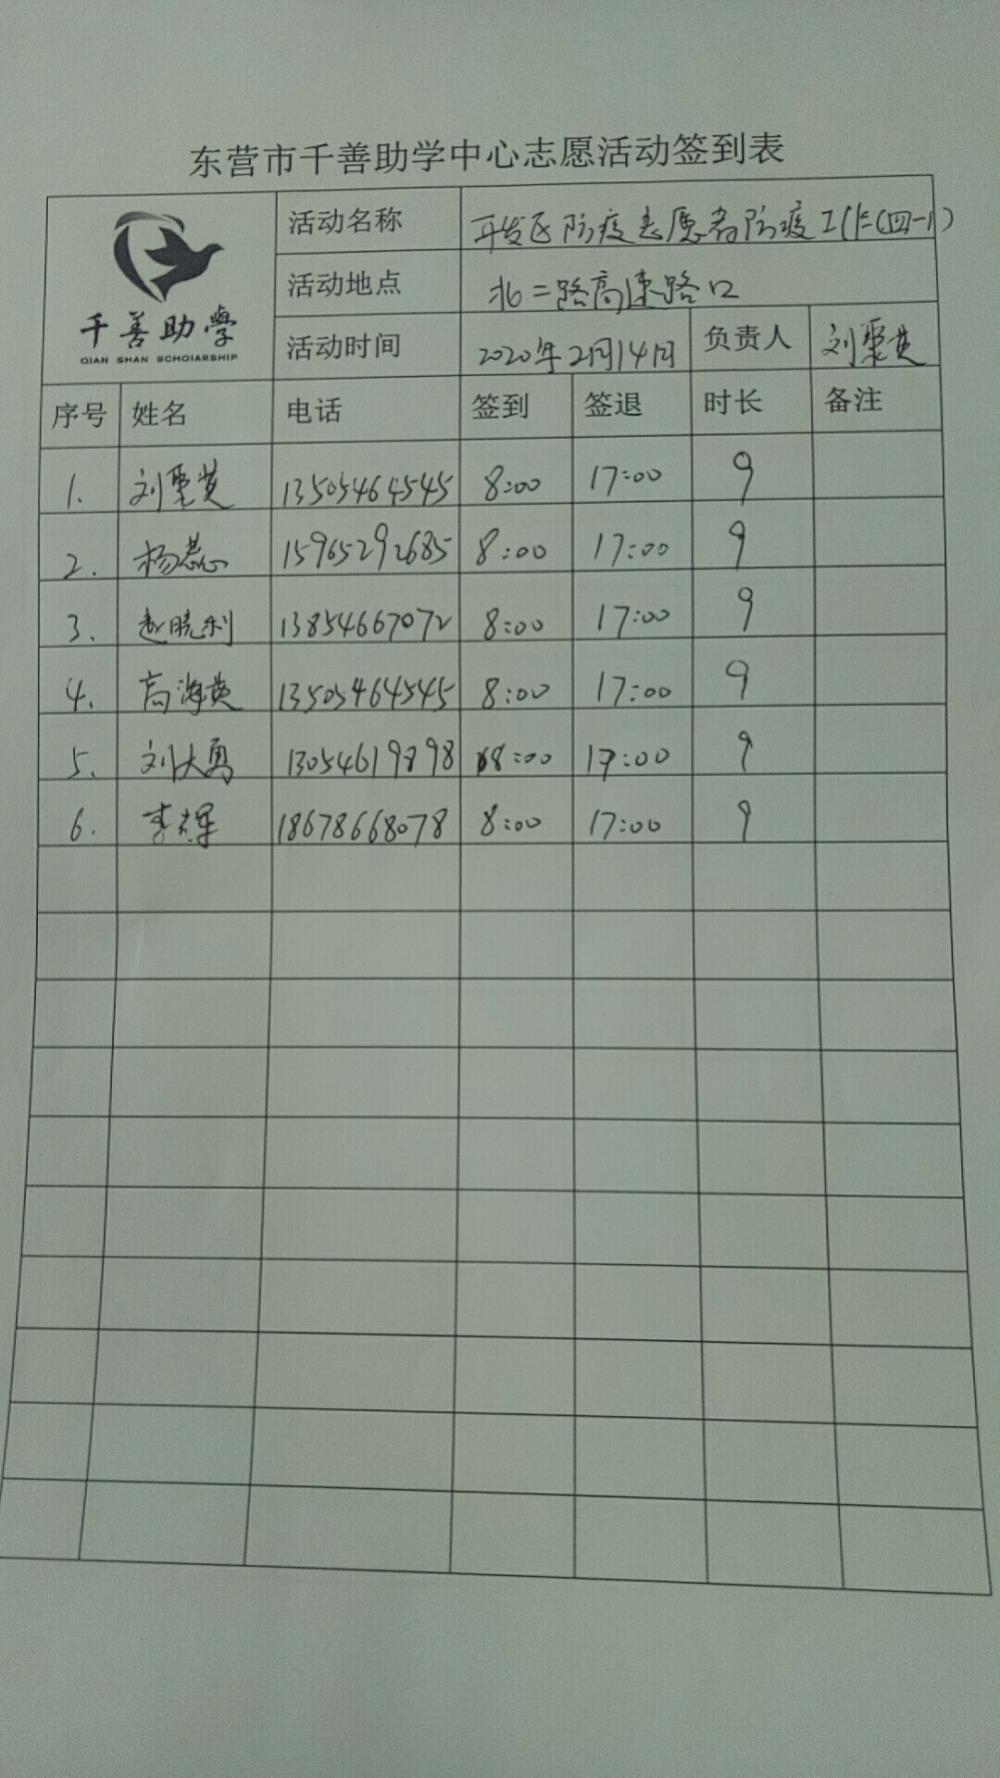 东营市千善助学中心志愿活动签到表
千善助學
QIAN SHAN SCHOIARSHIP
活动名称 开发区防疫志愿者防疫工作(四-1)
活动地点 北二路高速路口
活动时间 2020年2月14日 负责人 刘聚英
序号 姓名 电话 签到 签退 时长 备注
1. 刘聚英 13505464545 8:00 17:00 9
2. 杨蕊 15965292685 8:00 17:00 9
3. 赵晓利 13854667072 8:00 17:00 9
4. 高海英 13505464545 8:00 17:00 9
5. 刘大勇 13054619898 8:00 17:00 9
6. 李辉 18678668078 8:00 17:00 9